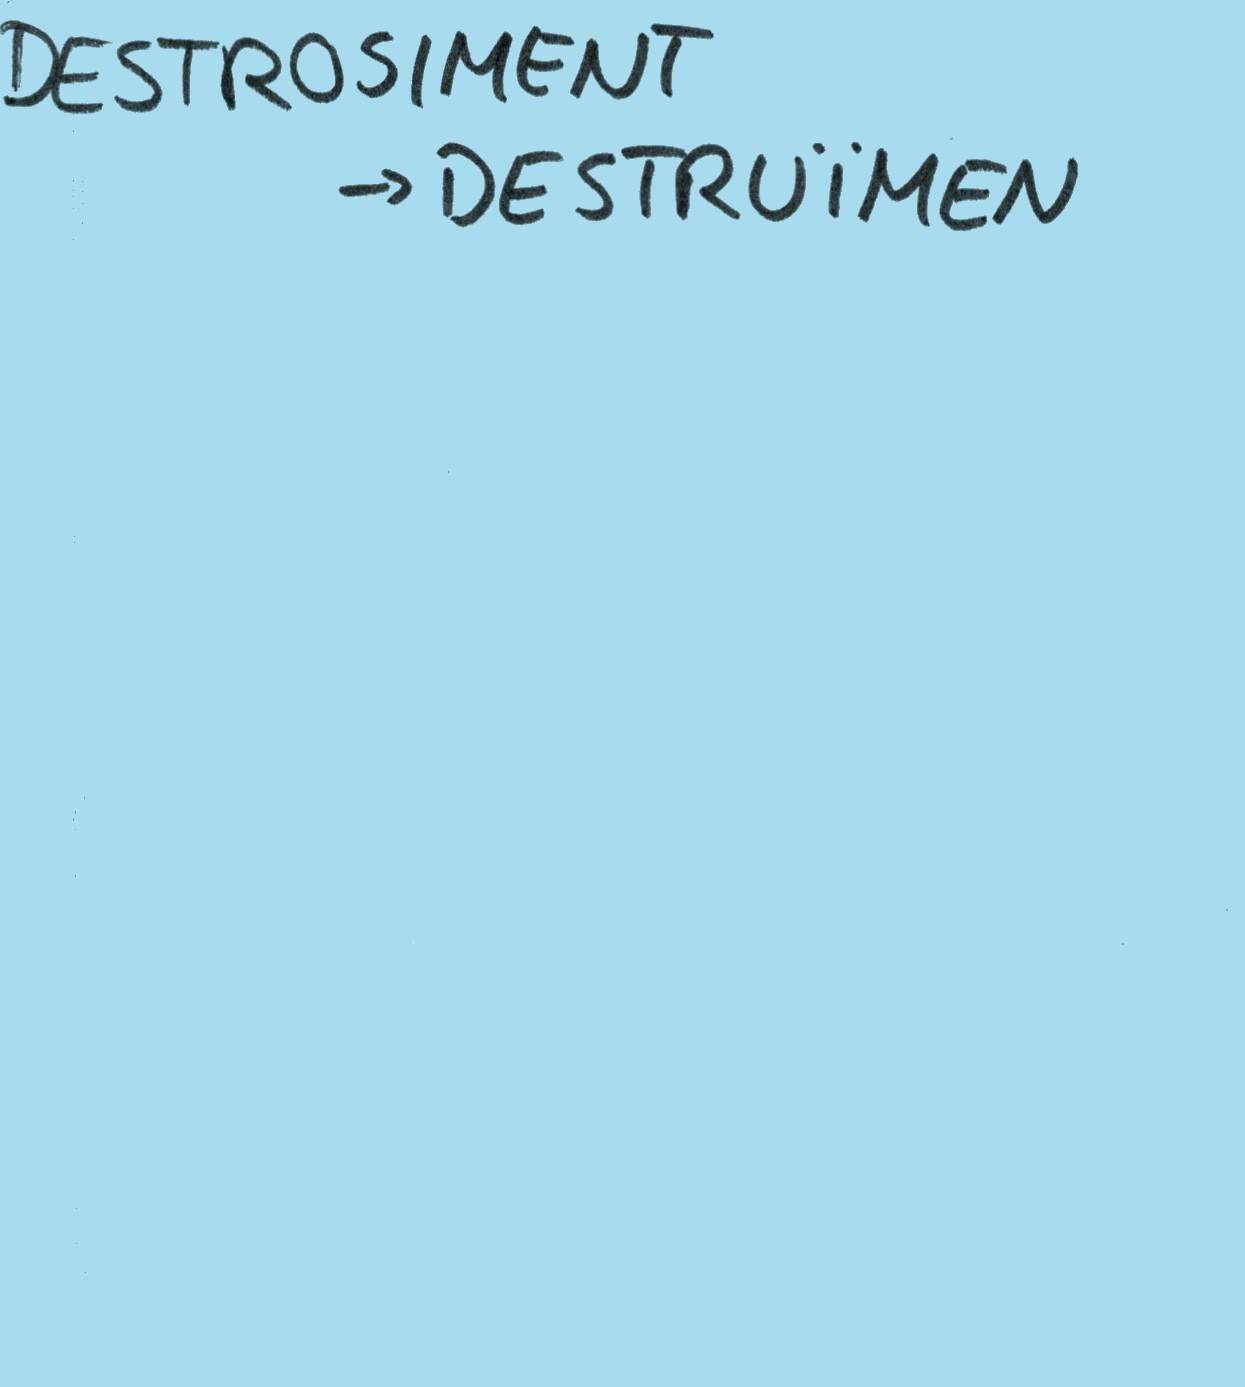 DESTROSIMENT
→ DESTRUÏMEN